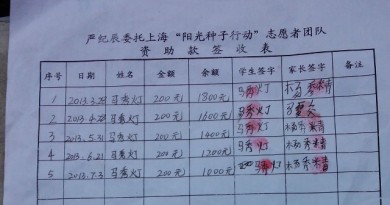 严纪辰委托上海“阳光种子行动”志愿者团队
资助款签收表
序号 日期 姓名 金额 余额 学生签字 家长签字 备注
1 2013.3.25 马秀灯 200元 1800元 马秀灯 杨秀精
2 2013.4.28 马秀灯 200元 1600元 马秀灯 马
3 2013.5.31 马秀灯 200元 1400元 马秀灯 杨秀精
4 2013.6.21 马秀灯 200元 1200元 马秀灯 杨秀精
5 2013.7.3 马秀灯 200元 1000元 马秀灯 杨秀精